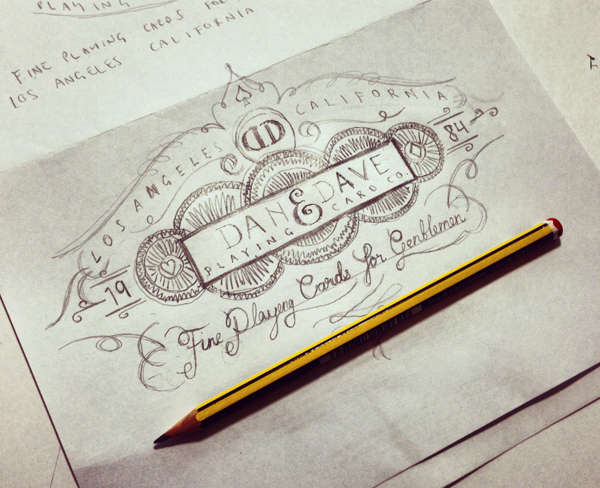 PLAYING
FINE PLAYING CARDS FOR
LOS ANGELES CALIFORNIA
LOS ANGELES CALIFORNIA
DD
DAN & DAVE
PLAYING CARD CO.
19 84
Fine Playing Cards for Gentlemen